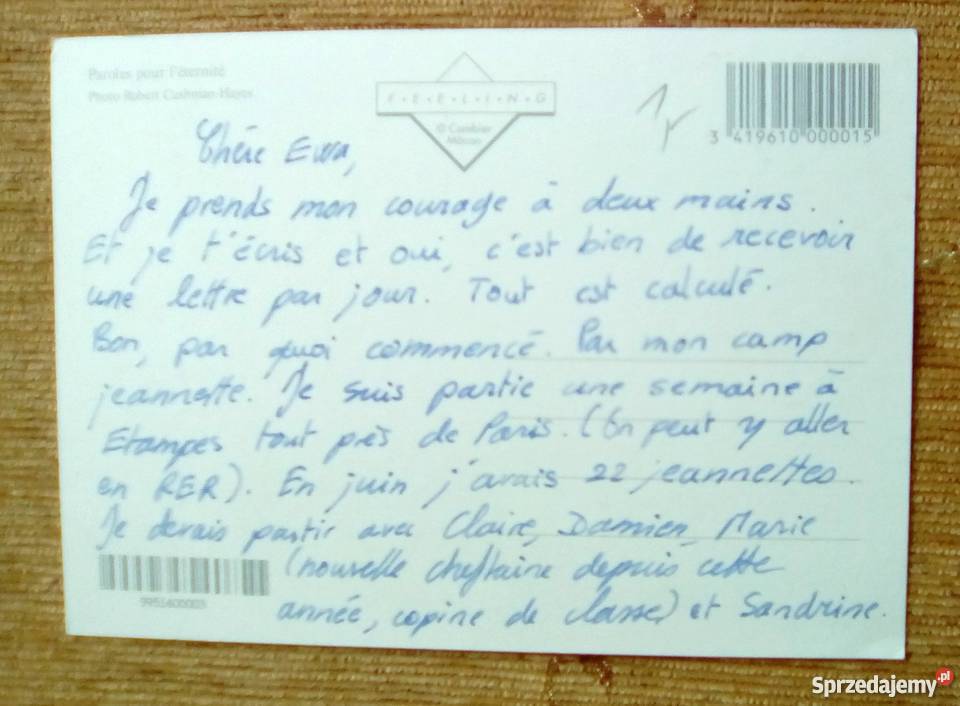 Paroles pour l'éternité
Photo Robert Cushman-Hayes
FEELING
© Cambier
1
3 419610 000015
Chère Ewa,
Je prends mon courage à deux mains.
Et je t'écris et oui, c'est bien de recevoir
une lettre par jour. Tout est calculé.
Bon, par quoi commencé. Par mon camp
jeannette. Je suis partie une semaine à
Etampes tout près de Paris. (On peut y aller
en RER). En juin j'avais 22 jeannettes.
Je devais partir avec Claire, Damien, Marie
(nouvelle cheftaine depuis cette
année, copine de classe) et Sandrine.
Sprzedajemy.pl